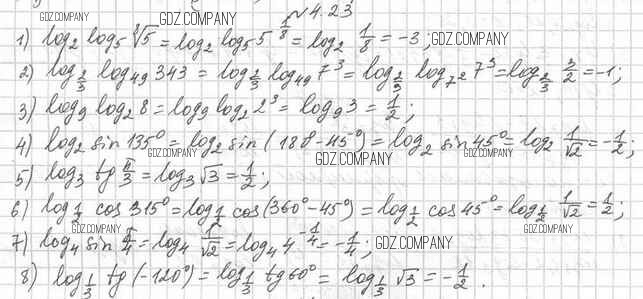 №4.23
GDZ.COMPANY GDZ.COMPANY
1) log₂ log₅ ⁸√5 = log₂ log₅ 5^(1/8) = log₂ 1/8 = -3; GDZ.COMPANY
2) log_(2/3) log₄₉ 343 = log_(2/3) log₄₉ 7³ = log_(2/3) log_(7²) 7³ = log_(2/3) 3/2 = -1;
3) log₉ log₂ 8 = log₉ log₂ 2³ = log₉ 3 = 1/2;
4) log₂ sin 135° = log₂ sin (180-45°) = log₂ sin 45° = log₂ 1/√2 = -1/2;
GDZ.COMPANY GDZ.COMPANY GDZ.COMPANY
5) log₃ tg π/3 = log₃ √3 = 1/2;
6) log_(1/2) cos 315° = log_(1/2) cos (360°-45°) = log_(1/2) cos 45° = log_(1/2) 1/√2 = 1/2;
GDZ.COMPANY GDZ.COMPANY
7) log₄ sin π/4 = log₄ 1/√2 = log₄ 4^(-1/4) = -1/4; GDZ.COMPANY
8) log_(1/3) tg (-120°) = log_(1/3) tg 60° = log_(1/3) √3 = -1/2.